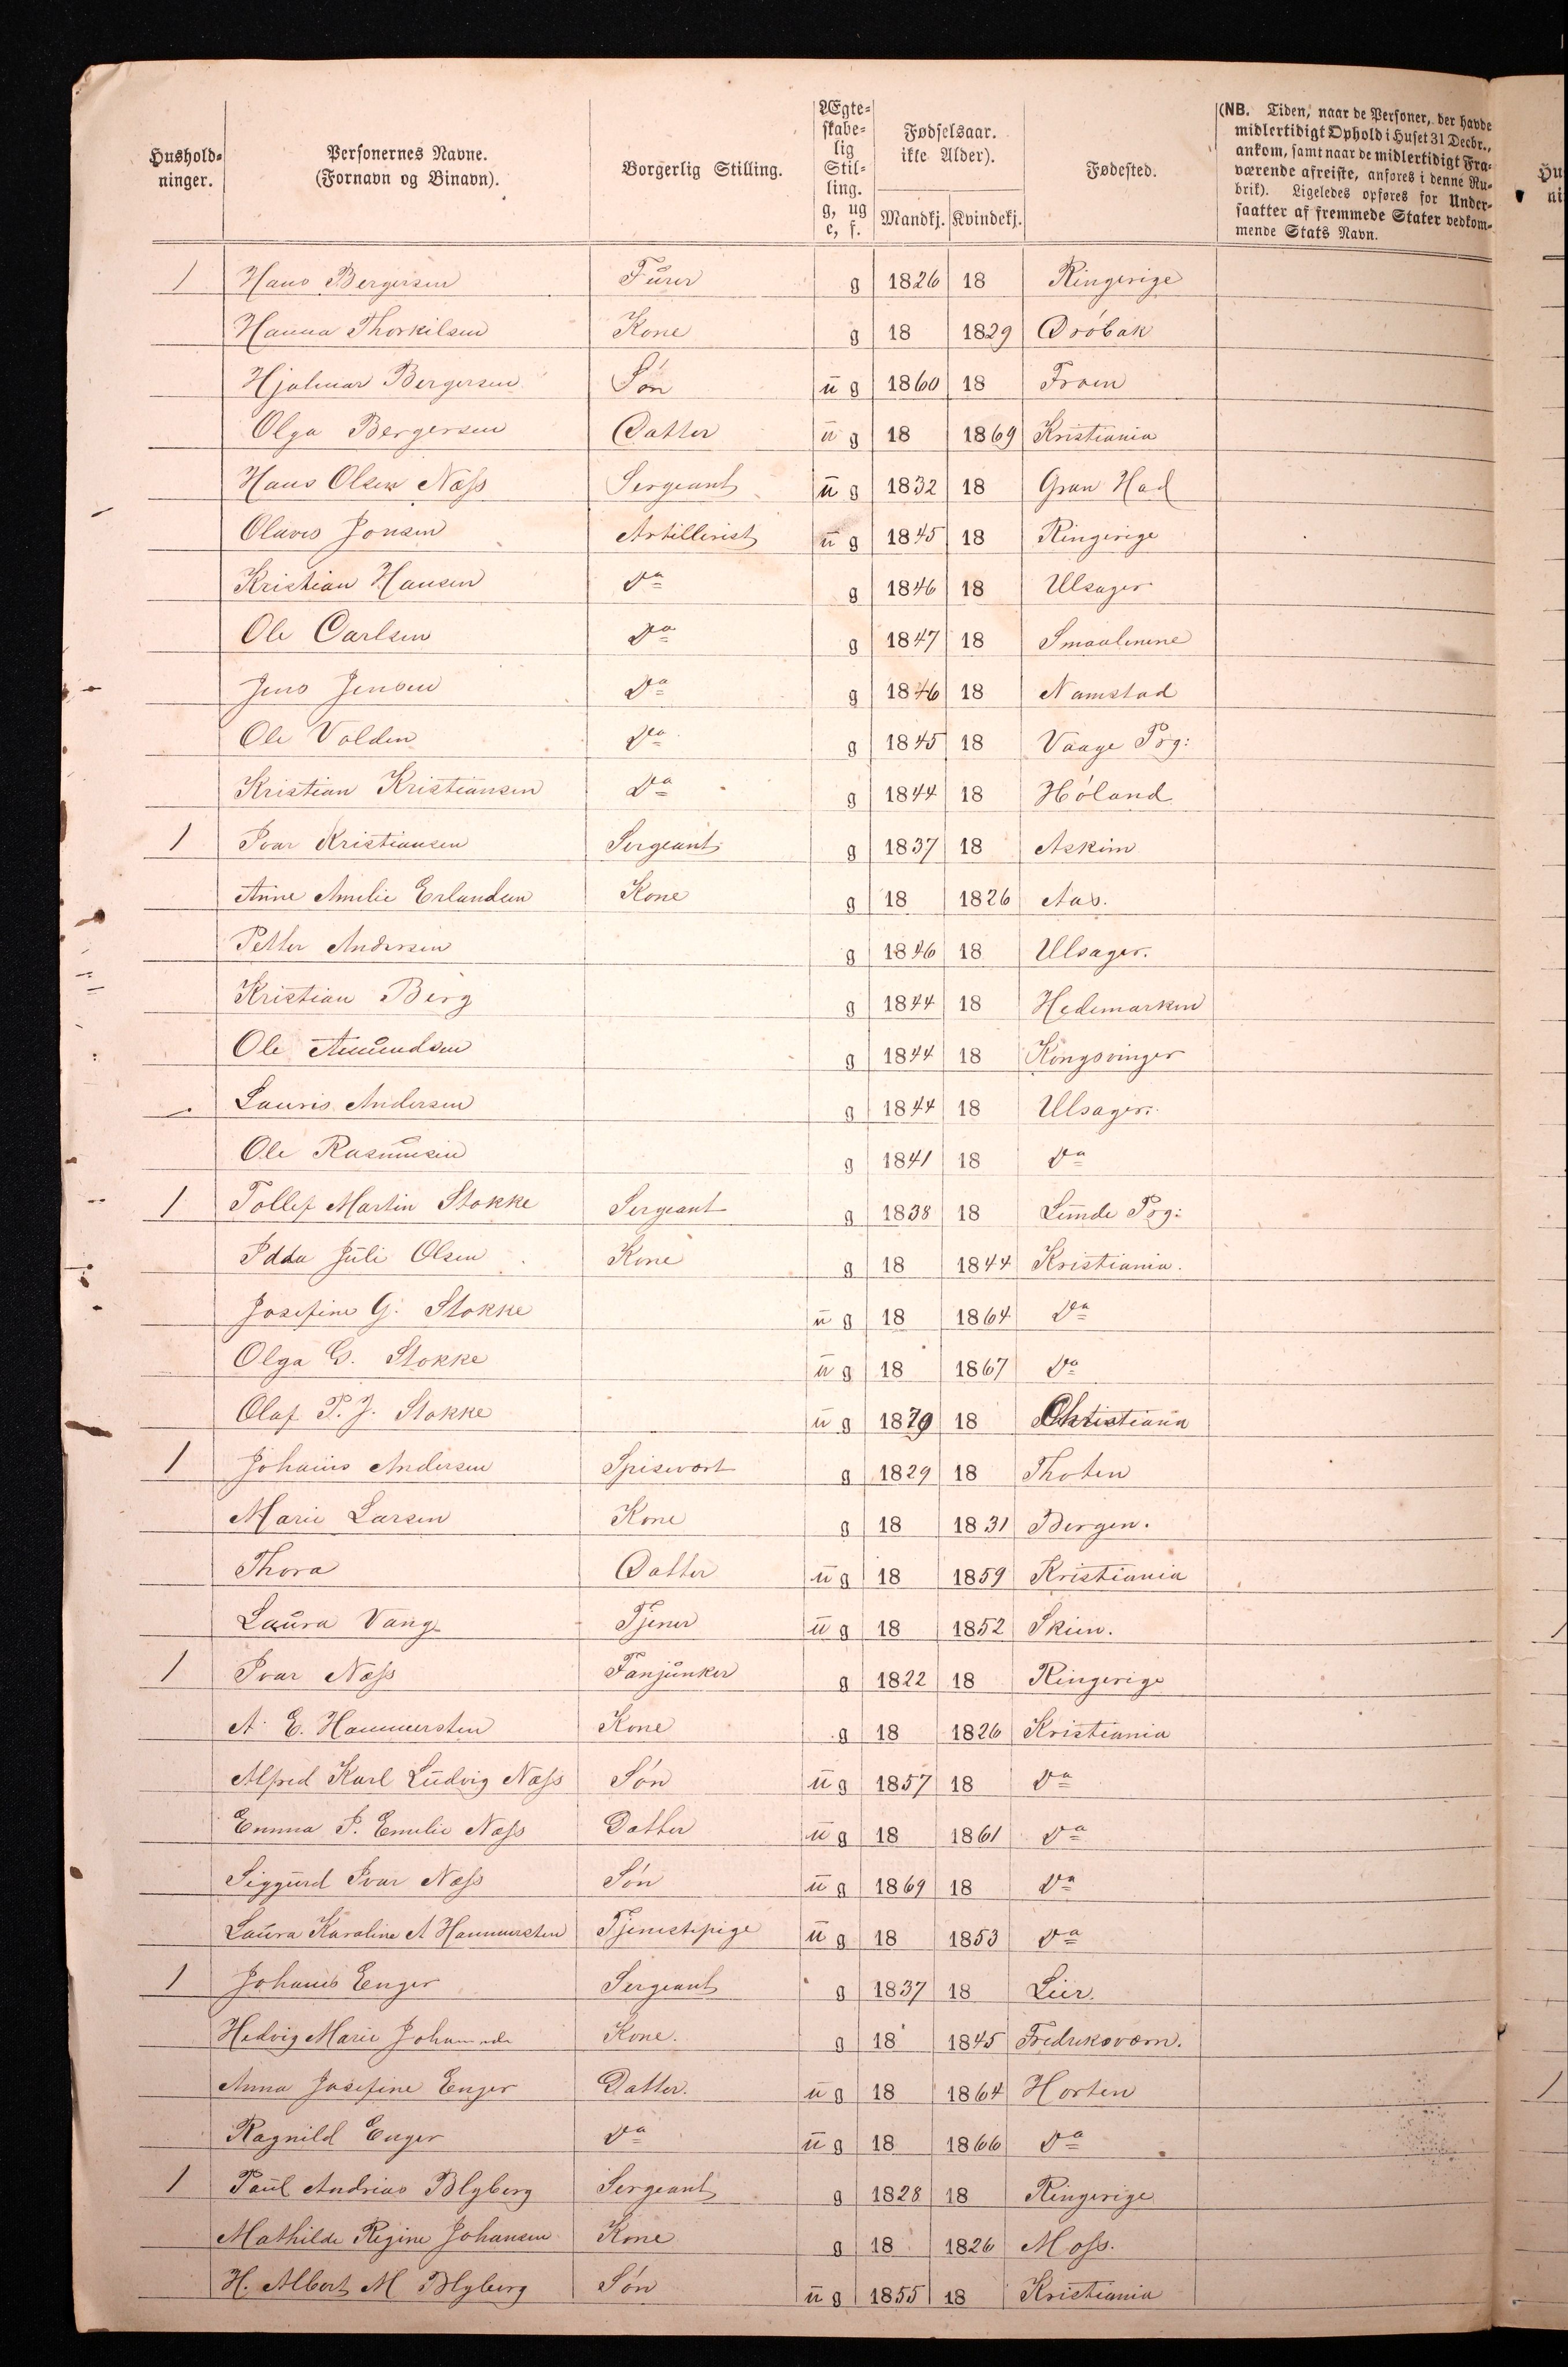 Hushold-
ninger.
Personernes Navne.
(Fornavn og Binavn).
Borgerlig Stilling.
Ægte-
skabe-
lig
Stil-
ling.
g, ug
e, f.
Fødselsaar.
ikke Alder).
Mandkj. Kvindekj.
Fødested.
(NB. Tiden, naar de Personer, der havde
midlertidigt Ophold i Huset 31 Decbr.,
ankom, samt naar de midlertidigt Fra-
værende afreiste, anføres i denne Ru-
brik). Ligeledes opføres for Under-
saatter af fremmede Stater vedkom-
mende Stats Navn.
1 Hans Bergersen Furer g 1826 18 Ringerige
Hanna Thorkilsen Kone g 18 1829 Drøbak
Hjalmar Bergersen Søn u g 1860 18 Froen
Olga Bergersen Datter u g 18 1869 Kristiania
Hans Olsen Næss Sergeant u g 1832 18 Gran Had
Olaves Jonsen Artillerist u g 1845 18 Ringerige
Kristian Hansen Do g 1846 18 Ulsager
Ole Carlsen Do g 1847 18 Smaalenene
Jens Jensen Do g 1846 18 Namstad
Ole Volden Do g 1845 18 Vaage Prg:
Kristian Kristiansen Do g 1844 18 Høland
1 Ivar Kristiansen Sergeant g 1837 18 Askim
Anne Amelie Erlandsen Kone g 18 1826 Aas.
Petter Andersen g 1846 18 Ulsager.
Kristian Berg g 1844 18 Hedemarken
Ole Amundsen g 1844 18 Kongsvinger
Lauris Andersen g 1844 18 Ulsager.
Ole Rasmusen g 1841 18 Do
1 Tollef Martin Stokke Sergeant g 1838 18 Lunde Prg:
Idda Juli Olsen Kone g 18 1844 Kristiania.
Josefine G. Stokke u g 18 1864 Do
Olga G. Stokke u g 18 1867 Do
Olaf P. J. Stokke u g 1870 18 Christiana
1 Johanes Andersen Spisevært g 1829 18 Thoten
Marie Larsen Kone g 18 1831 Bergen.
Thora Datter u g 18 1859 Kristiania
Laura Vang Tjener u g 18 1852 Skien.
1 Ivar Næss Fanjunker g 1822 18 Ringerige
A. E. Hammersten Kone g 18 1826 Kristiania
Alfred Karl Ludvig Næss Søn u g 1857 18 Do
Emma P. Emilie Næss Datter u g 18 1861 Do
Siggurd Ivar Næss Søn u g 1869 18 Do
Laura Karoline A Hammersten Tjenestepige u g 18 1853 Do
1 Johanes Enger Sergeant g 1837 18 Lier.
Hedvig Marie Kone. g 18 1845 Fredriksværn.
Anna Josefine Enger Datter. u g 18 1864 Horten
Ragnild Enger Do u g 18 1866 Do
1 Paul Andreas Blyberg Sergeant g 1828 18 Ringerige
Mathilde Regine Johansen Kone g 18 1826 Moss.
H. Albert M Blyberg Søn u g 1855 18 Kristiania